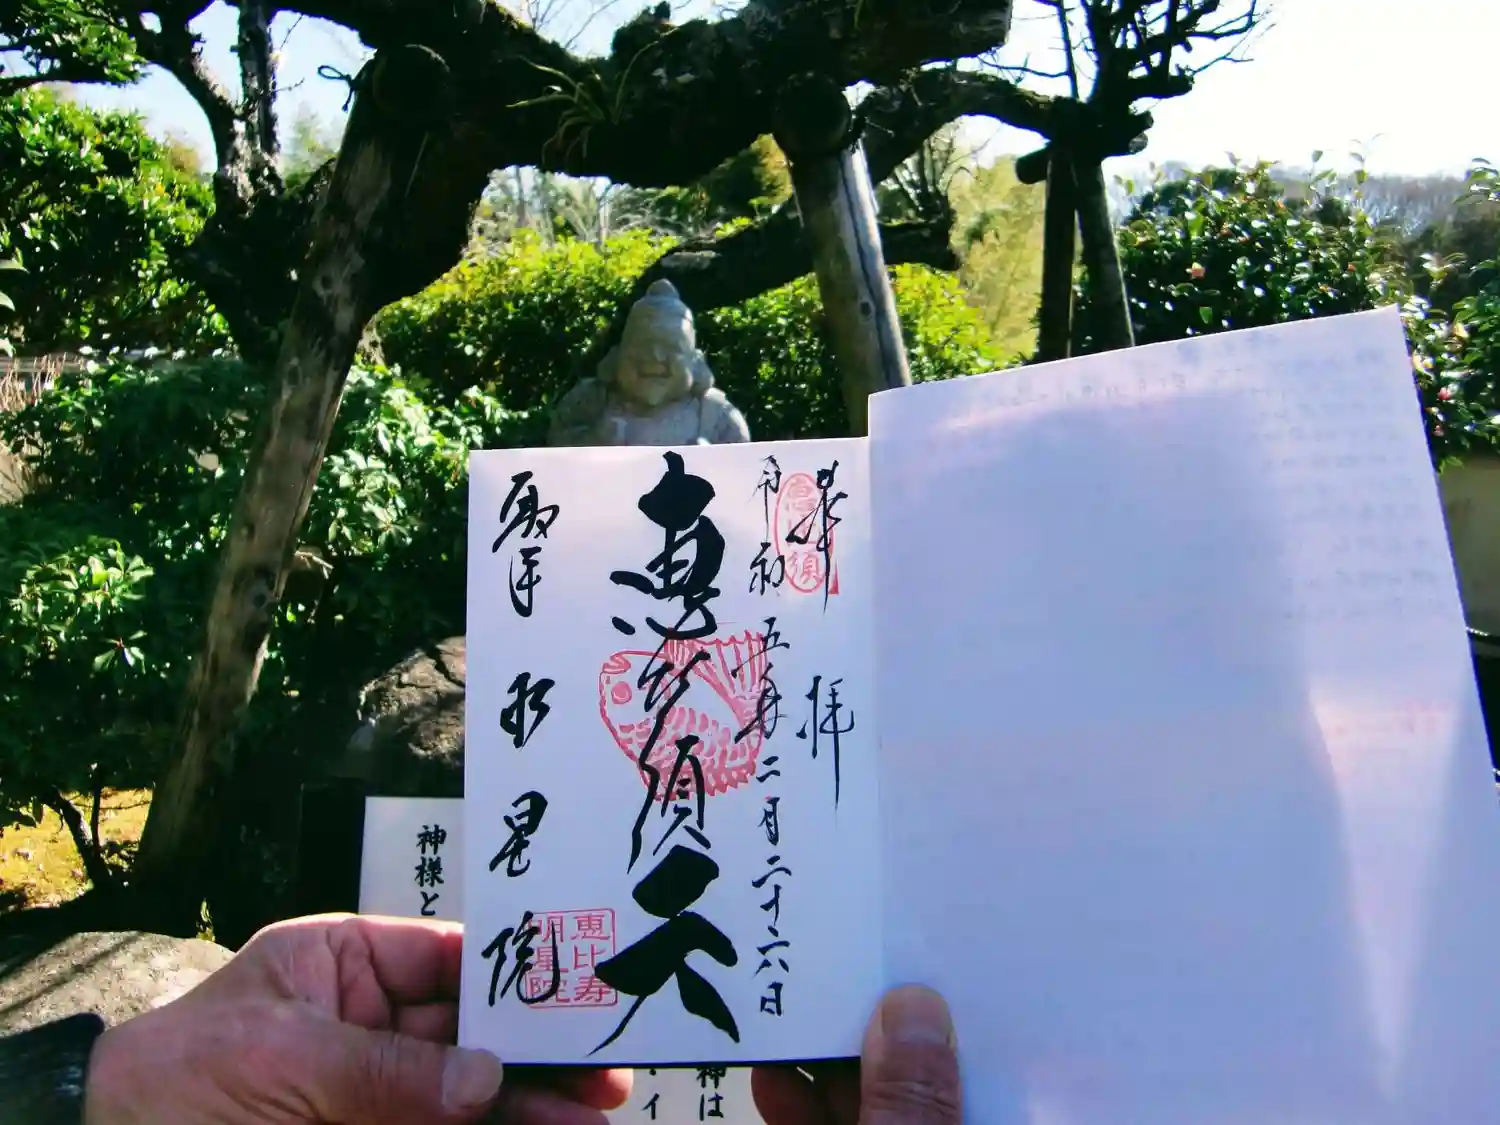 奉拝
令和五年二月二十六日
恵比須天
聖明星院
恵比須
恵比寿
明星院
神様と
・イ
神は